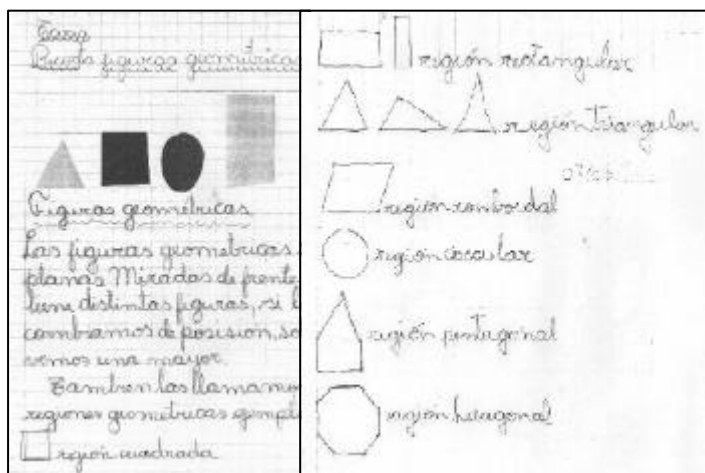 Tarea
figuras geométricas
Figuras geométricas
Las figuras geometricas
planas Miradas de frente
tiene distintas figuras, si
cambiamos de posision, so
vemos una mayor.
Tambien las llamamos
regiones geometricas ejemplo
región cuadrada
región rectangular
región triangular
región romboidal
región circular
región pentagonal
región hexagonal